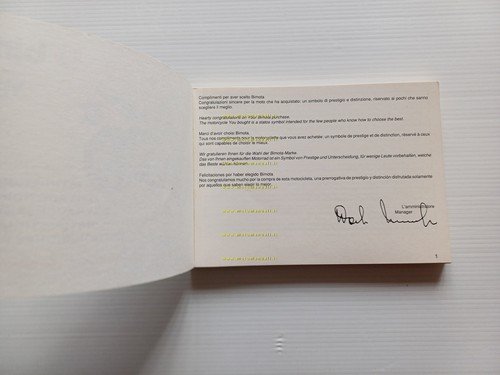 Complimenti per aver scelto Bimota.
Congratulazioni sincere per la moto che ha acquistato: un simbolo di prestigio e distinzione, riservato ai pochi che sanno
scegliere il meglio.
Hearty congratulations on Your Bimota purchase.
The motorcycle You bought is a status symbol intended for the few people who know how to choose the best.
Merci d'avoir choisi Bimota.
Tous nos compliments pour la motocyclette que vous avez achetée: un symbole de prestige et de distinction, réservé à ceux
qui sont capables de choisir le mieux.
Wir gratulieren Ihnen für die Wahl der Bimota-Marke.
Das von Ihnen eingekauften Motorrad ist ein Symbol von Prestige und Unterscheidung, für wenige Leute vorbehalten, welche
das Beste wählen können.
Felicitaciones por haber elegido Bimota.
Nos congratulamos mucho por la compra de esta motocicleta, una prerrogativa de prestigio y distinción disfrutada solamente
por aquellos que saben elegir lo mejor.
L'amministratore
Manager
1